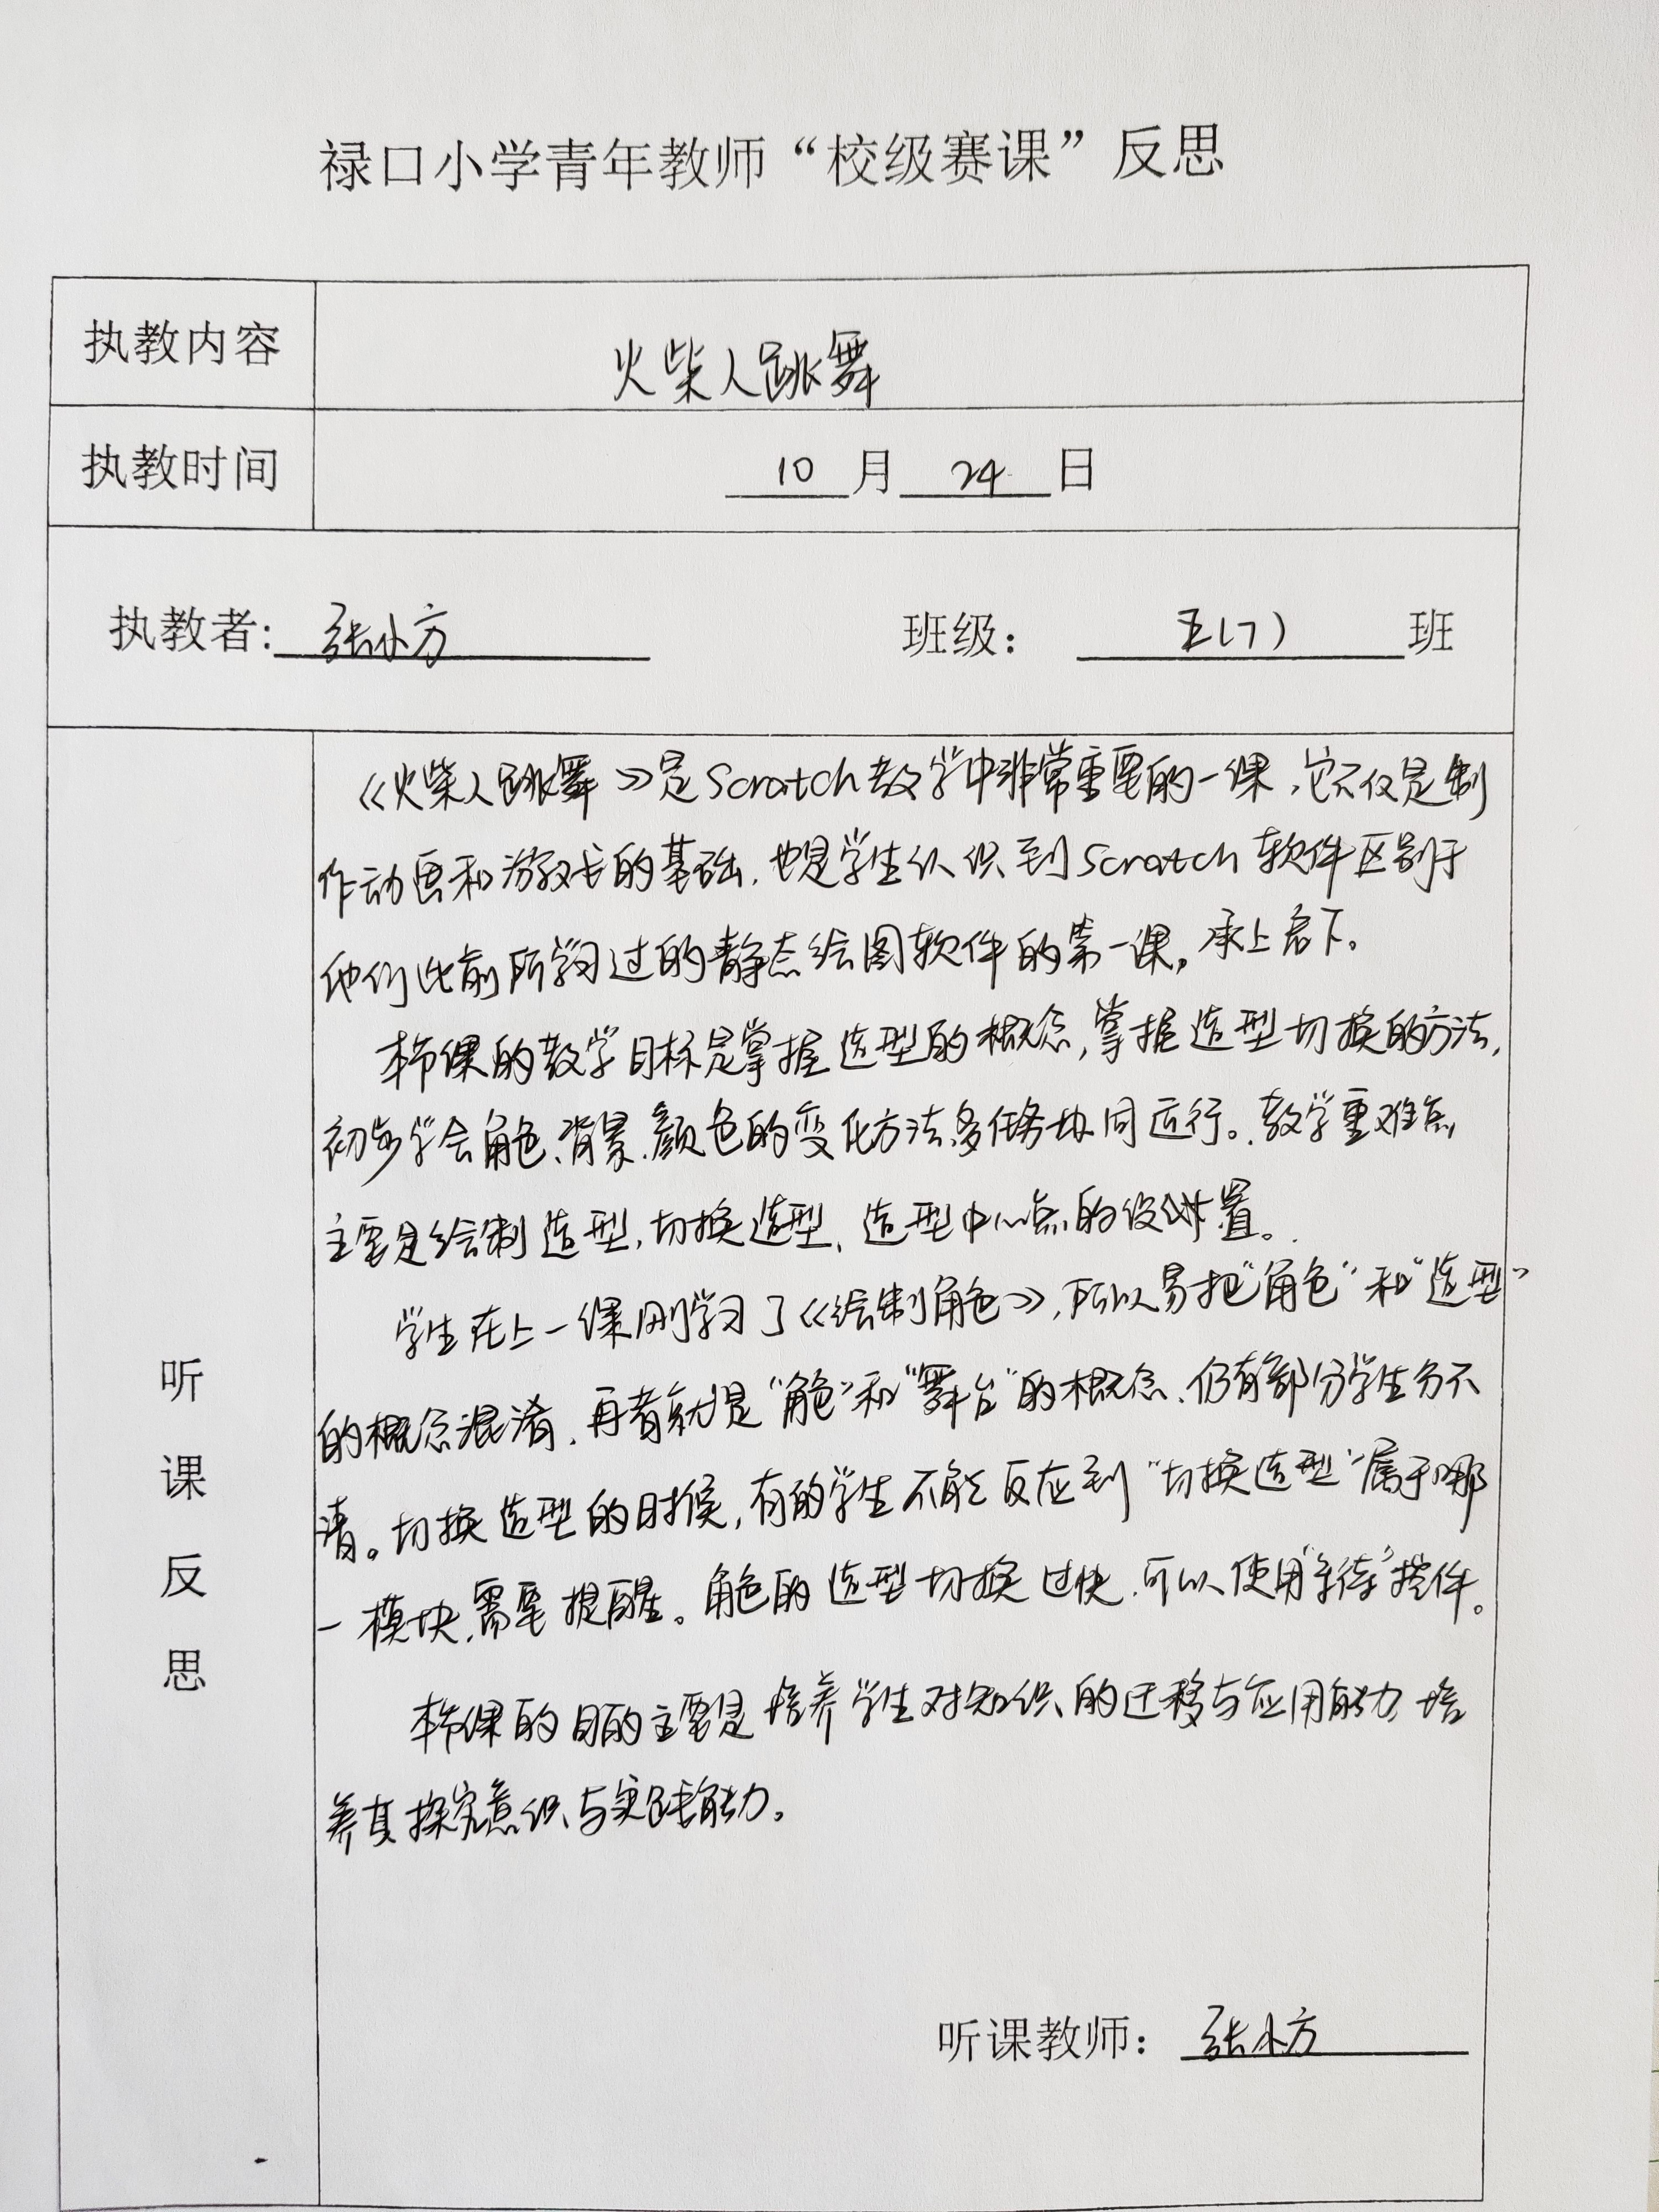 禄口小学青年教师“校级赛课”反思
执教内容 火柴人跳舞
执教时间 10月24日
执教者：张小方 班级：五(7)班
听课反思
《火柴人跳舞》是Scratch教学中非常重要的一课，它不仅是制
作动画和游戏的基础，也是学生认识到Scratch软件区别于
他们此前所学习过的静态绘图软件的第一课。承上启下。
本节课的教学目标是掌握造型的概念，掌握造型切换的方法，
初步学会角色、背景、颜色的变化方法多储协同运行。教学重难点，
主要是绘制造型，切换造型、造型中心点的设置。
学生在上一课刚学习了《绘制角色》，所以易把“角色”和“造型”
的概念混淆，再者就是“角色”和“舞台”的概念、仍有部分学生分不
清。切换造型的时候，有的学生不能反应到“切换造型”属于哪
一模块，需要提醒。角色的造型切换过快，可以使用“等待”控件。
本节课的目的主要是培养学生对知识的迁移与应用能力，培
养其探究意识与实践能力。
听课教师：张小方